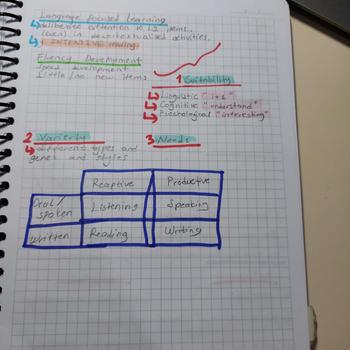 Language focused learning
deliberate attention to L2 items.
(voca) in decontextualised activities.
INTENSIVE reading
Fluency Development
speed development
Little/no new items
1 Suitability
Linguistic "i+1"
Cognitive "understand"
Psychological "interesting"
2 Variety
different types and
genres and styles
3 Needs
Reaptive Productive
Oral/
spoken Listening Speaking
Written Reading Writing